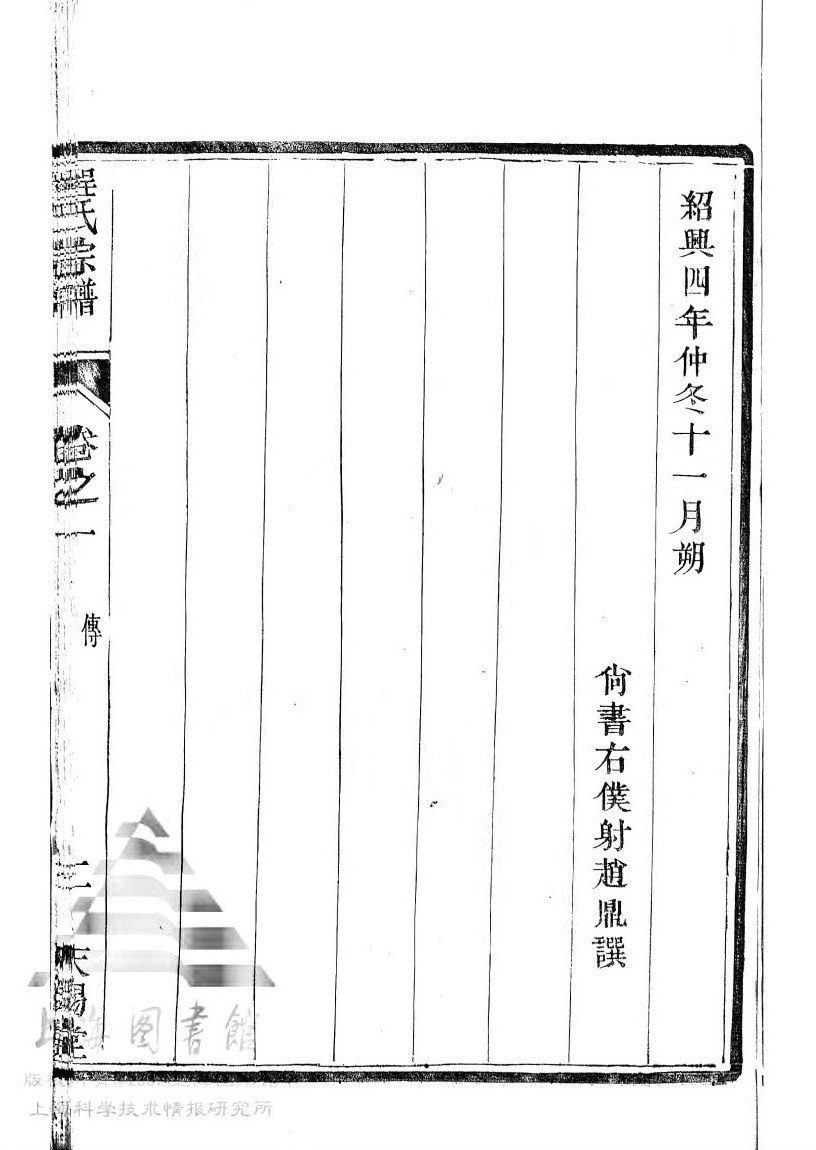 紹興四年仲冬十一月朔
尚書右僕射趙鼎譔
程氏宗譜
卷之一
傳
天錫堂
上海图書館
上海科学技术情报研究所